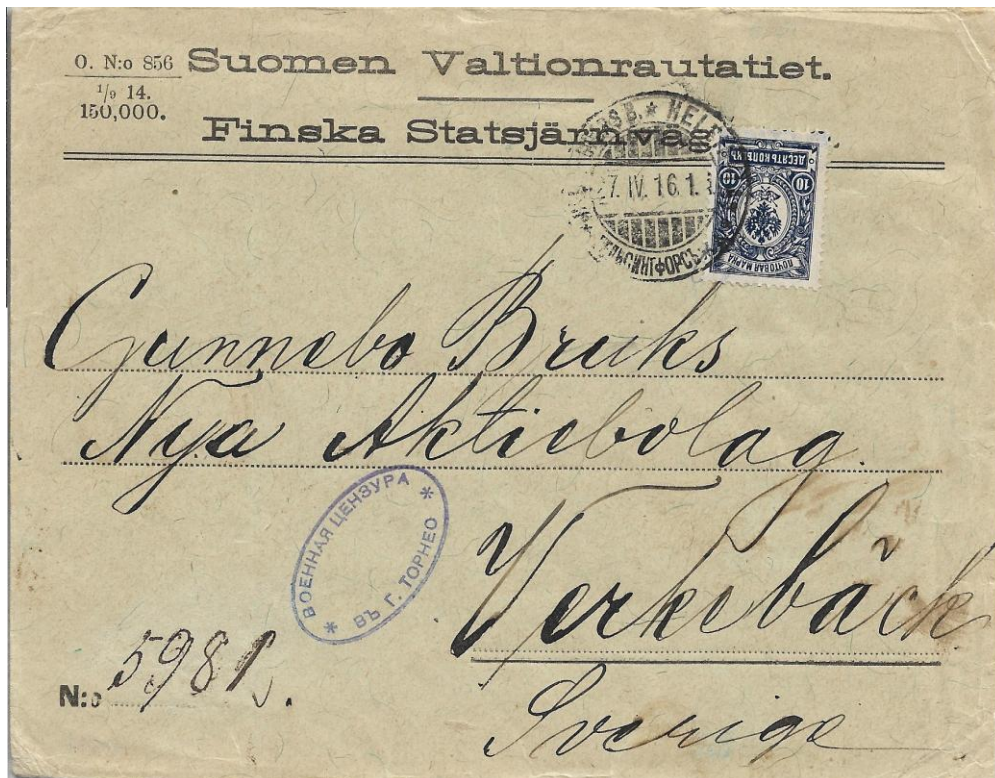 O. N:o 856
1/9 14.
150,000.
Suomen Valtionrautatiet.
Finska Statsjärnväg
HELS
27. IV. 16. 1.
ДЕСЯТЬ КОПѢЕКЪ
10 10
ПОЧТОВАЯ МАРКА
Gunnebo Bruks
Nya Aktiebolag.
ВОЕННАЯ ЦЕНЗУРА
ВЪ Г. ТОРНЕО
Verkebäck
Sverige
N:o 5981.